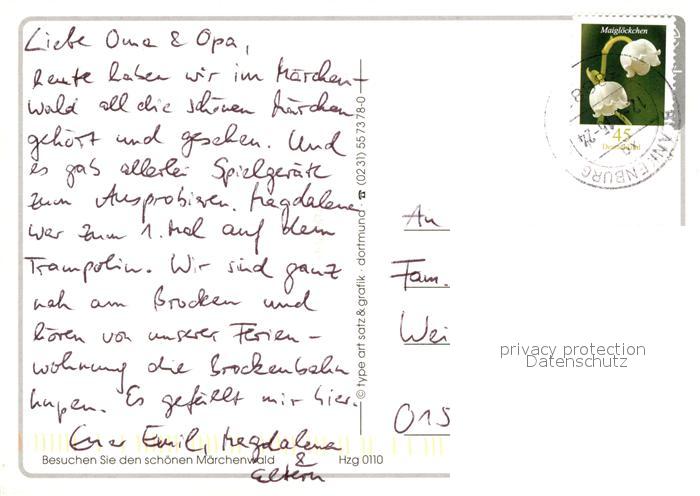 Liebe Oma & Opa,
heute haben wir im Märchen-
wald all die schönen Märchen
gehört und gesehen. Und
es gab allerlei Spielgeräte
zum Ausprobieren. Magdalena
war zum 1. Mal auf dem
Trampolin. Wir sind ganz
nah am Brocken und
hören von unserer Ferien-
wohnung die Brockenbahn
hupen. Es gefällt mir hier.
Euer Emil, Magdalena
& Eltern
Besuchen Sie den schönen Märchenwald
Hzg 0110
© type art satz & grafik · dortmund · ☎ (0231) 557378-0
Maiglöckchen
45
Deutschland
BLANKENBURG
An
Fam.
Wei
015
privacy protection
Datenschutz